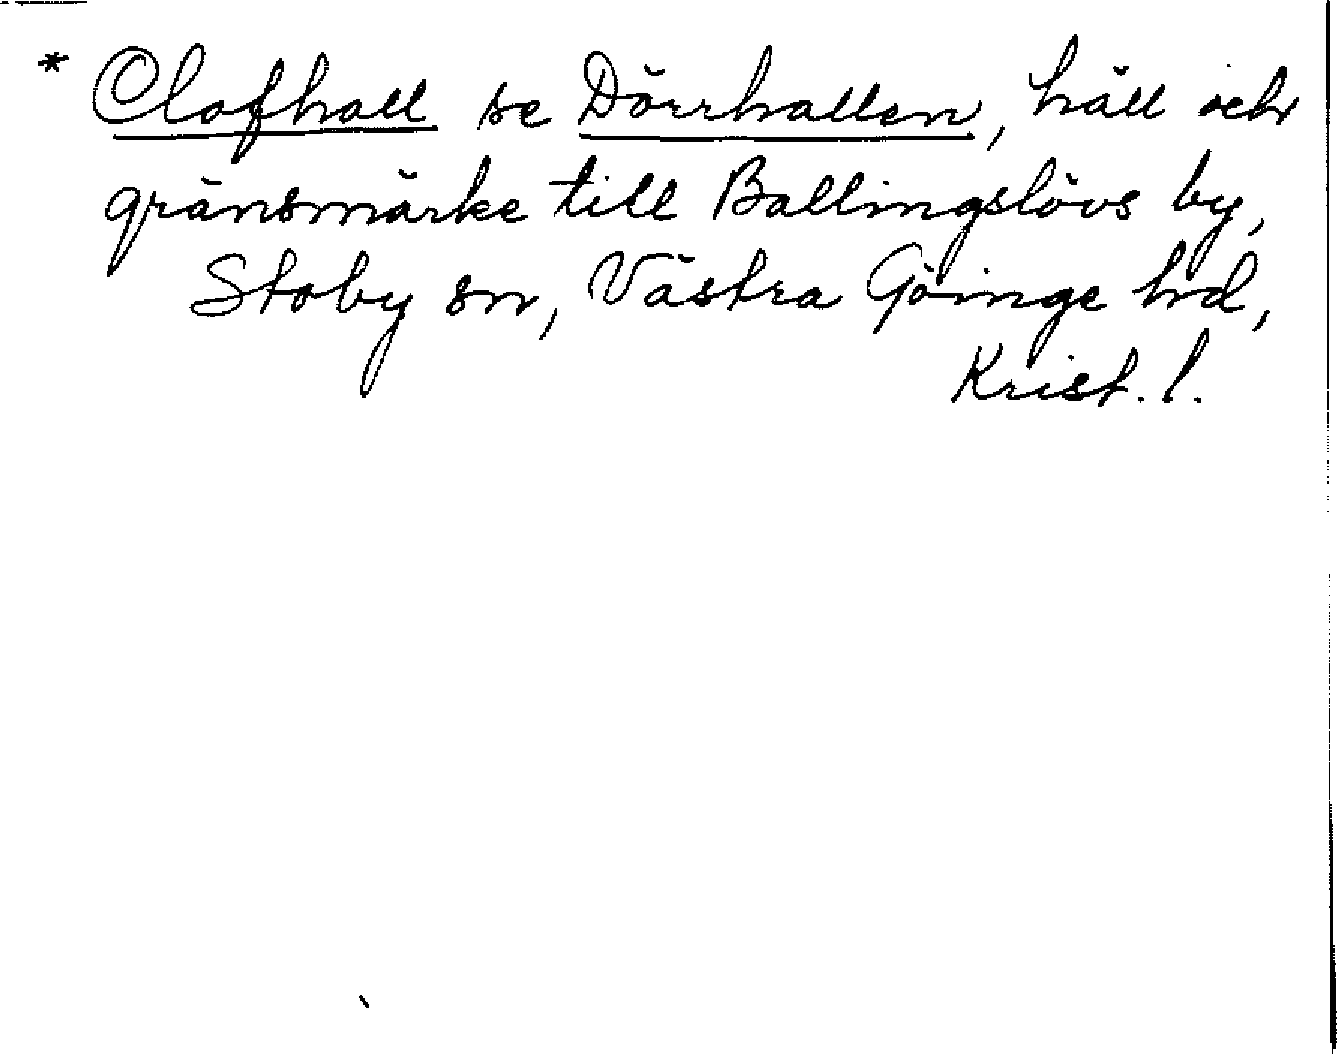 * Clafhall se Dörrhallen, häll och
gränsmärke till Ballingslövs by,
Stoby sn, Västra Göinge hd,
Krist. l.